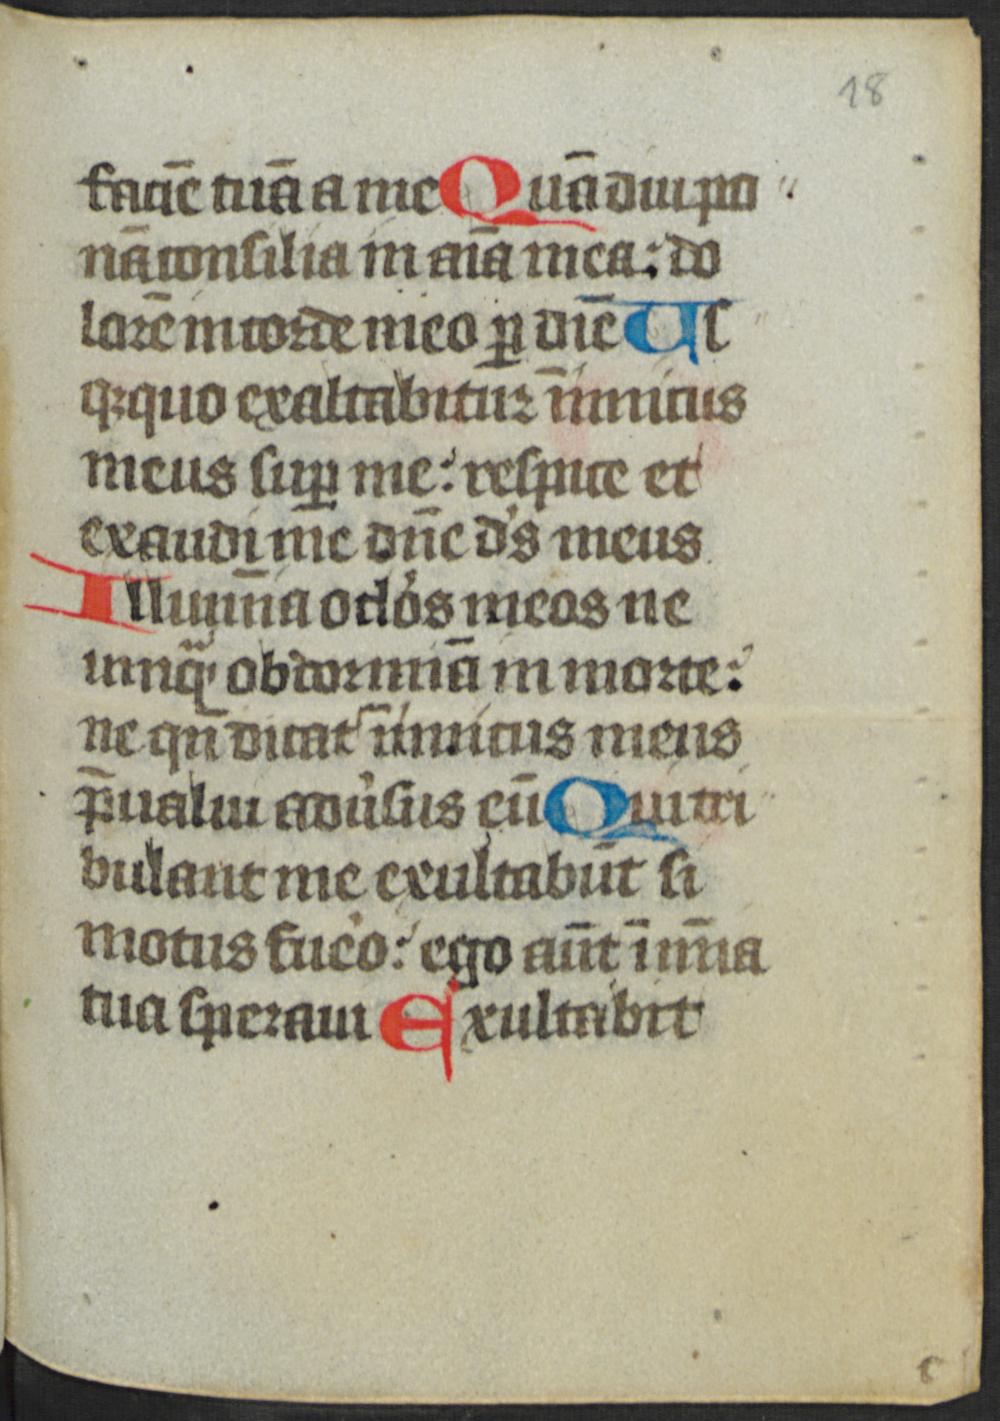 18
faciē tuā a me Quādiu po
nā consilia in aīa mea: do
lorē in corde meo ꝑ diē Us
qꝫ quo exaltabitur īimicus
meus suꝑ me: respice et
exaudi me dn̄e ds̓ meus
Illumīa oclo̓s meos ne
unqᷓ obdormiā in morte:
ne qn̄ dicat inimicus meus
p̄ualui adu̓sus eū Qui tri
bulant me exultabūt si
motus fue̓o: ego aūt ī mīa
tua speraui Exultabit